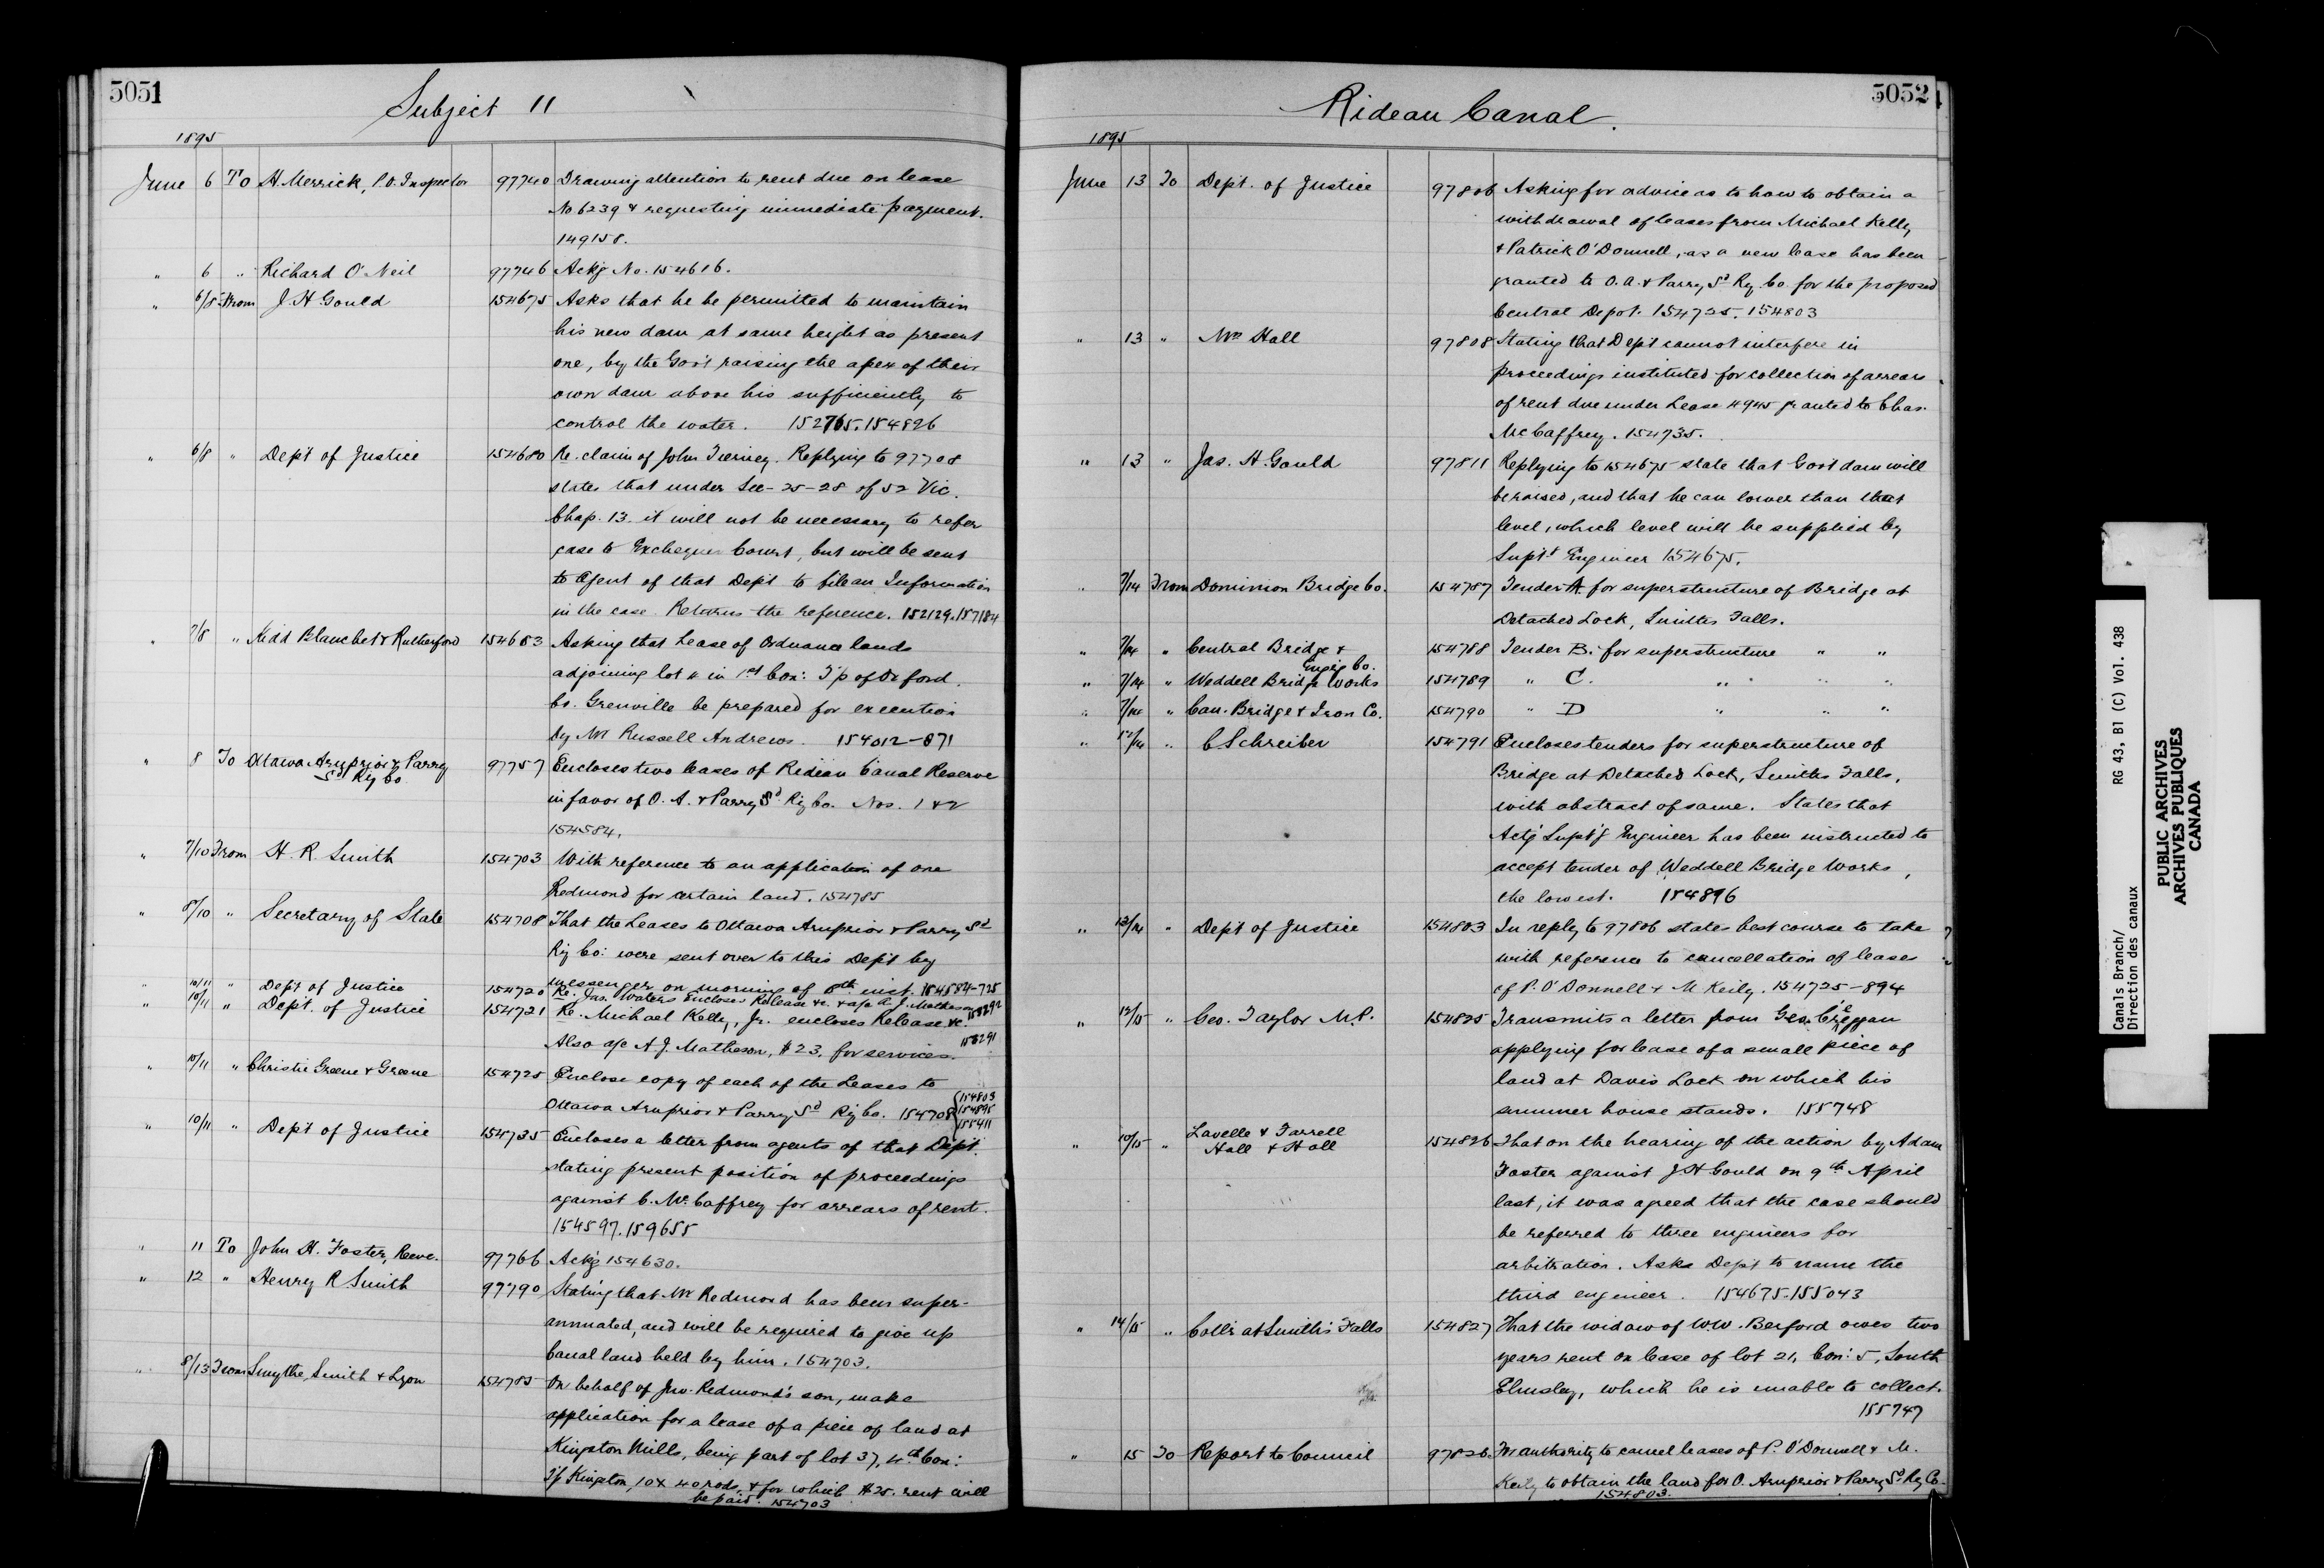 5051
Subject 11
1895
June 6 To A. Merrick, P.O. Inspector 97740 Drawing attention to rent due on lease
No 6239 & requesting immediate payment.
149158.
" 6 " Richard O'Neil 97746 Ackg No. 154616.
" 6/8 From J H Gould 154675 Asks that he be permitted to maintain
his new dam at same height as present
one, by the Gov't raising the apex of their
own dam above his sufficiently to
control the water. 152765.154826
" 6/8 " Dep't of Justice 154680 Re. claim of John Tierney. Replying to 97708
states that under Sec-25-28 of 52 Vic.
Chap. 13. it will not be necessary to refer
case to Exchequer Court, but will be sent
to Agent of that Dep't to file an Information
in the case. Returns the reference. 152129.157184
" 7/8 " Kidd Blanchet & Rutherford 154683 Asking that Lease of Ordnance lands
adjoining lot 4 in 1st Con: T'p of Oxford.
Co. Grenville be prepared for execution
by Mr Russell Andrews. 154012-871
" 8 To Ottawa Arnprior & Parry
Sd Ry Co. 97757 Encloses two leases of Rideau Canal Reserve
in favor of O. A. & Parry Sd Ry Co. Nos. 1 & 2
154584.
" 7/10 From H. R. Smith 154703 With reference to an application of one
Redmond for certain land. 154785
" 8/10 " Secretary of State 154708 That the Leases to Ottawa Arnprior & Parry Sd
Ry Co: were sent over to this Dep't by
messenger on morning of 8th inst. 154584-725
" 10/11 " Dep't of Justice 154720 Re. Jas. Waters encloses Release &c. & a/c A. J. Matheson 158292
" 10/11 " Dept. of Justice 154721 Re. Michael Kelly, Jr. encloses Release &c.
Also a/c A. J. Matheson, $23. for services. 158291
" 10/11 " Christie Greene & Greene 154725 Enclose copy of each of the Leases to
Ottawa Arnprior & Parry Sd Ry Co. 154708 {154803
154895
155411
" 10/11 " Dep't of Justice 154735 Encloses a letter from agents of that Dep't.
stating present position of proceedings
against C. McCaffrey for arrears of rent.
154597.159655
" 11 To John H. Foster, Reeve. 97766 Ackg 154630.
" 12 " Henry R Smith 97790 Stating that Mr Redmond has been super-
annuated, and will be required to give up
Canal land held by him. 154703.
" 8/13 From Smythe, Smith & Lyon 154785 On behalf of Jno. Redmond's son, make
application for a lease of a piece of land at
Kingston Mills, being part of lot 37, 4th Con:
T'p Kingston, 10 x 40 rods, & for which $25. rent will
be paid. 154703
5052
Rideau Canal.
1895
June 13 To Dept. of Justice 97806 Asking for advice as to how to obtain a
withdrawal of leases from Michael Kelly
& Patrick O'Donnell, as a new lease has been
granted to O. A. & Parry Sd Ry. Co. for the proposed
Central Depot. 154725. 154803
" 13 " Mr Hall 97808 Stating that Dep't cannot interfere in
proceedings instituted for collection of arrears
of rent due under Lease 4945 granted to Chas.
McCaffrey. 154735.
" 13 " Jas. H. Gould 97811 Replying to 154675 state that Gov't dam will
be raised, and that he can lower than that
level, which level will be supplied by
Sup't Engineer 154675.
" 7/14 From Dominion Bridge Co. 154787 Tender A. for superstructure of Bridge at
Detached Lock, Smiths Falls.
" 7/14 " Central Bridge &
Eng'g Co. 154788 Tender B. for superstructure " "
" 7/14 " Weddell Bridge Works 154789 " C. " " "
" 7/14 " Can. Bridge & Iron Co. 154790 " D " " "
" 12/14 " C Schreiber 154791 Encloses tenders for superstructure of
Bridge at Detached Lock, Smiths Falls,
with abstract of same. States that
Act'g Supt'g Engineer has been instructed to
accept tender of Weddell Bridge Works,
the lowest. 154896
" 13/14 " Dep't of Justice 154803 In reply to 97806 states best course to take
with reference to cancellation of lease
of P. O'Donnell & M Keily. 154725-894
" 12/15 " Geo. Taylor M.P. 154825 Transmits a letter from Geo. Creggan
applying for lease of a small piece of
land at Davis Lock on which his
summer house stands. 155748
" 10/15 " Lavelle & Farrell
Hall & Hall 154826 That on the hearing of the action by Adam
Foster against J H Gould on 9th April
last, it was agreed that the case should
be referred to three engineers for
arbitration. Asks Dep't to name the
third engineer. 154675.155043
" 14/15 " Coll'r at Smith's Falls 154827 That the widow of W.W. Berford owes two
years rent on lease of lot 21, Con: 5, South
Elmsley, which he is unable to collect.
155747
" 15 To Report to Council 97826. For authority to cancel leases of P. O'Donnell & M.
Keily to obtain the land for O. Arnprior & Parry Sd Ry Co.
154803.
Canals Branch/
Direction des canaux
RG 43, B1 (C) Vol. 438
PUBLIC ARCHIVES
ARCHIVES PUBLIQUES
CANADA